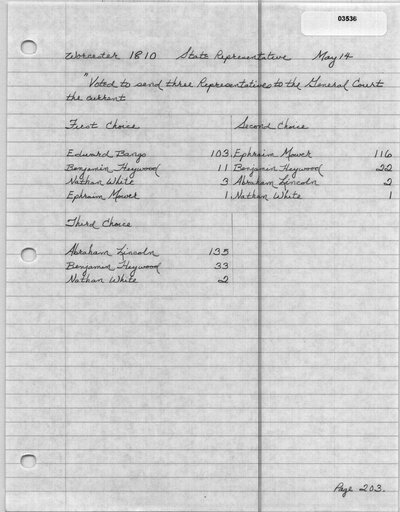 03536
Worcester 1810 State Representative May 14
"Voted to send three Representative to the General Court
the current
First Choice Second Choice
Edward Bangs 103 Ephraim Mower 116
Benjamin Heywood 11 Benjamin Heywood 22
Nathan White 3 Abraham Lincoln 2
Ephraim Mower 1 Nathan White 1
Third Choice
Abraham Lincoln 135
Benjamin Heywood 33
Nathan White 2
Page 203.